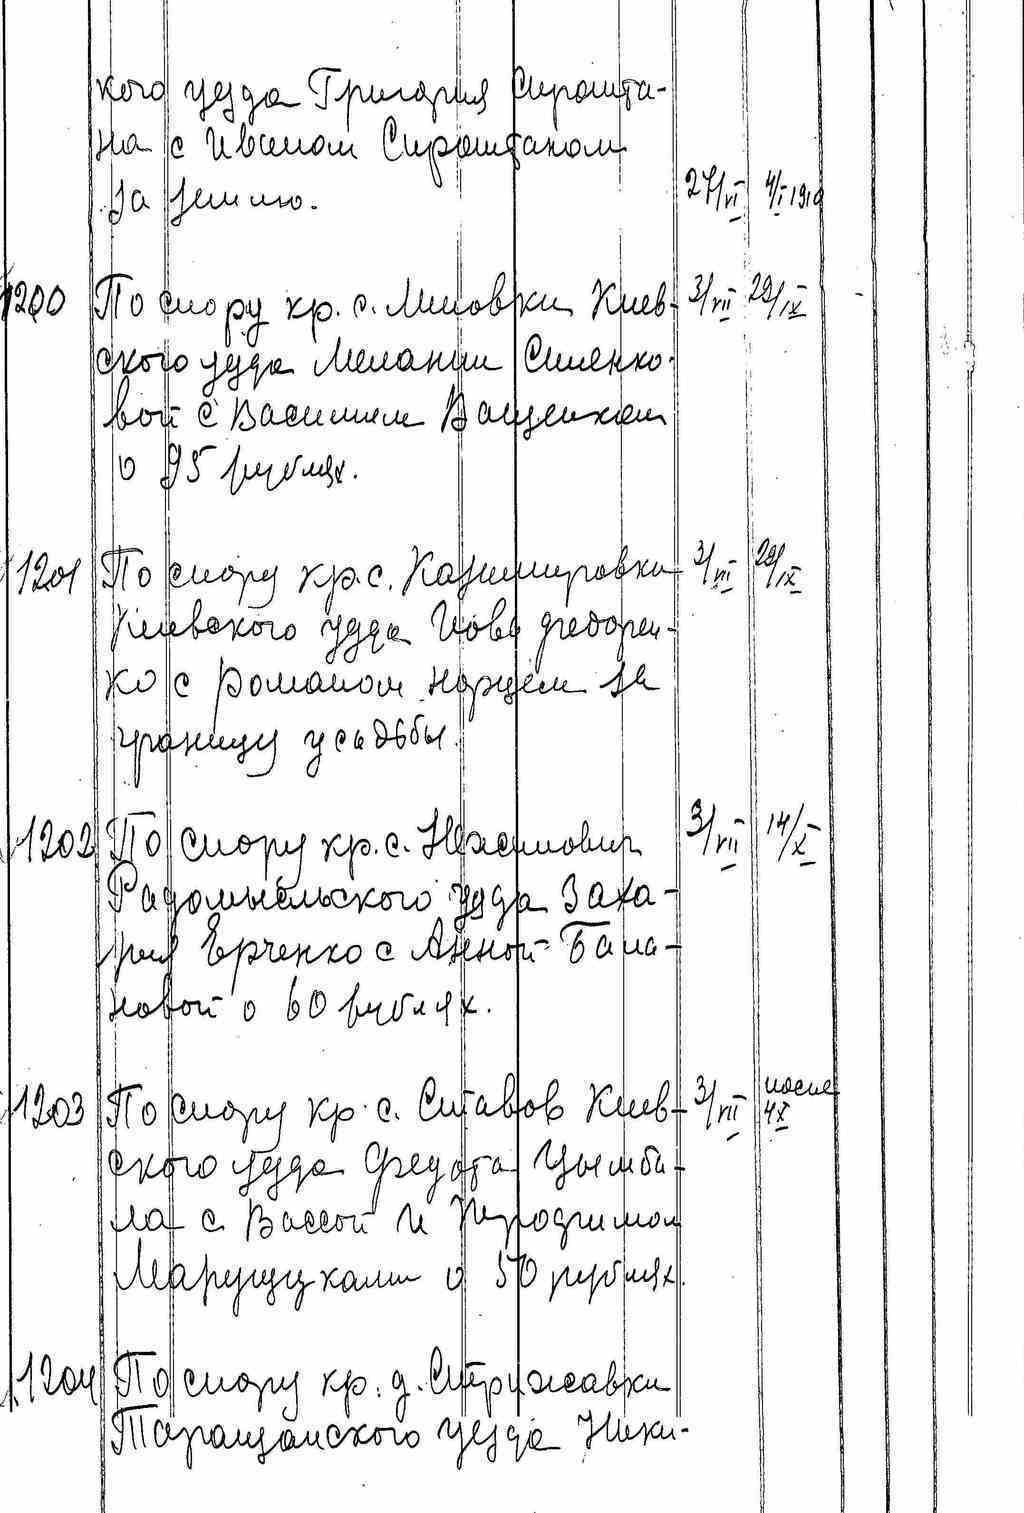 кого уезда Григория Сирошта-
на с Иваном Сироштаном
за землю. 27/VI 4/I 1910
1200 По спору кр. с. Липовки Киев- 3/VII 29/IX
ского уезда Мелании Сименко-
вой с Василием Ващенком
о 95 рублях.
1201 По спору кр. с. Казимировки 3/VII 29/IX
Киевского уезда Иова Федорен-
ко с Романом за
границу усадьбы.
1202 По спору кр. с. Нежиловичи 3/VII 14/X
Радомысльского уезда Заха-
рия Ерченко с Анной Бала-
новой о 60 рублях.
1203 По спору кр. с. Ставов Киев- 3/VII после 4X
ского уезда Федота Цымба-
ла с Вассой и Трофимом
Марущуками о 50 рублях.
1204 По спору кр. д. Стрижавки
Таращанского уезда Ники-